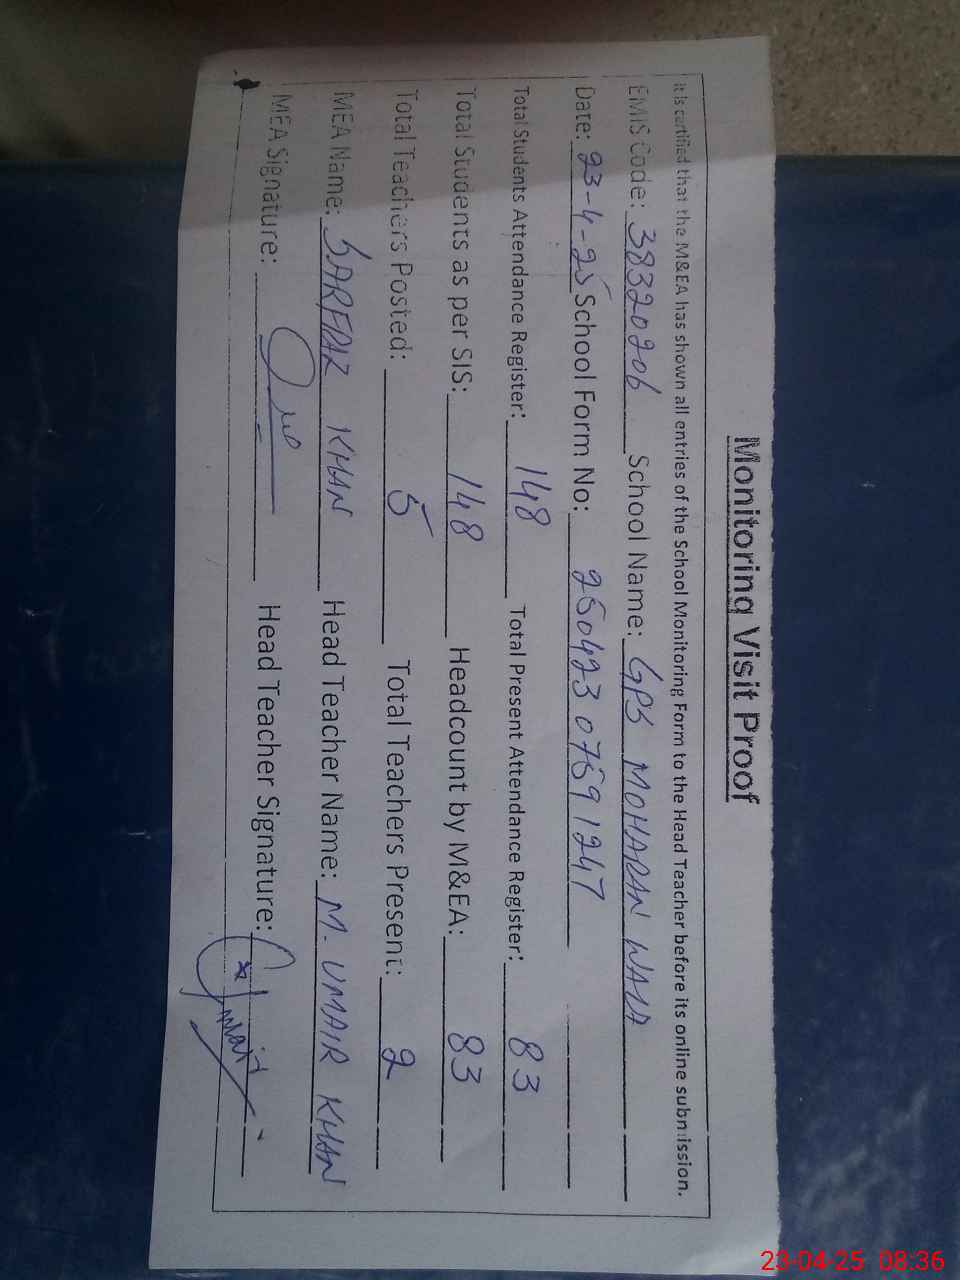 Monitoring Visit Proof
It is certified that the M&EA has shown all entries of the School Monitoring Form to the Head Teacher before its online submission.
EMIS Code: 38320206 School Name: GPS MOHARAN WALA
Date: 23-4-25 School Form No: 250423 0759 1247
Total Students Attendance Register: 148 Total Present Attendance Register: 83
Total Students as per SIS: 148 Headcount by M&EA: 83
Total Teachers Posted: 5 Total Teachers Present: 2
MEA Name: SARFRAZ KHAN Head Teacher Name: M. UMAIR KHAN
MEA Signature: Head Teacher Signature:
23-04-25 08:36